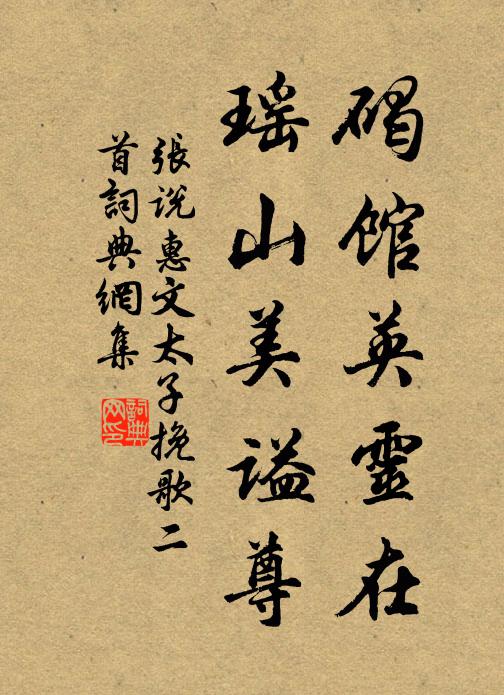 碣馆英靈在
瑶山美谥尊
張说惠文太子挽歌二
首詞典網集
詞典网印